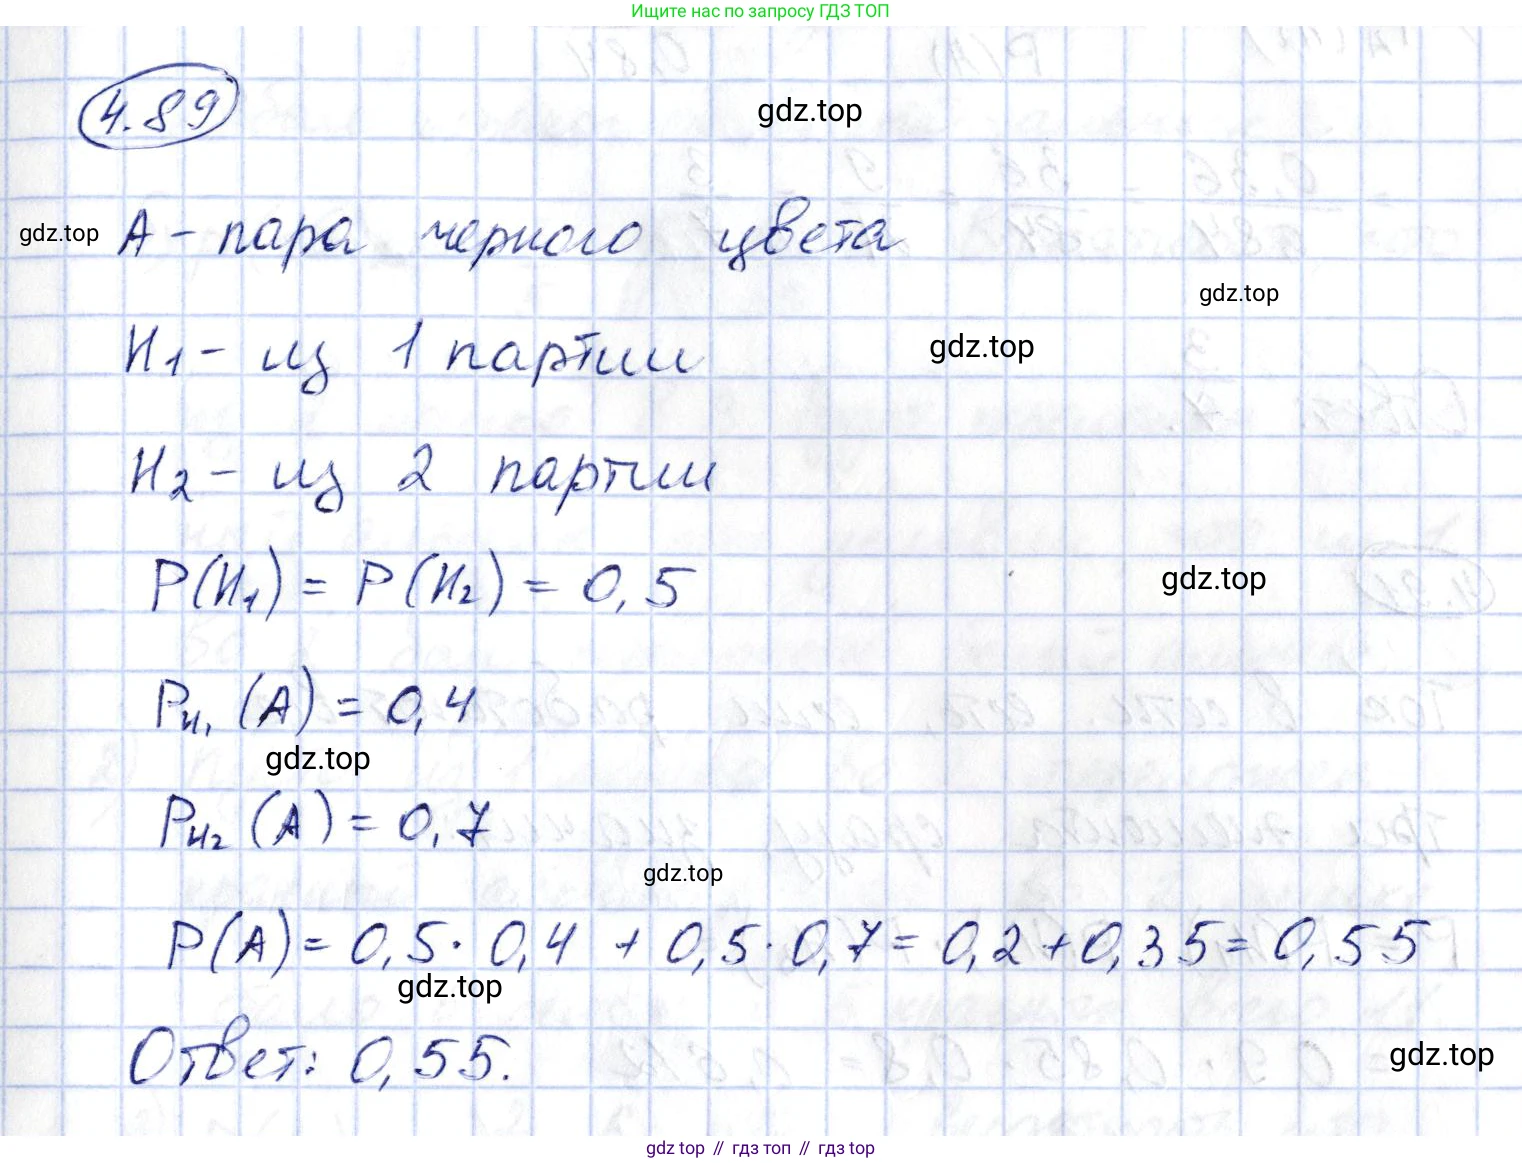 Ищите нас по запросу ГДЗ ТОП
4.89
gdz.top
gdz.top
А - пара черного цвета
gdz.top
H₁ - из 1 партии
gdz.top
H₂ - из 2 партии
P(H₁) = P(H₂) = 0,5
gdz.top
P_H₁(A) = 0,4
gdz.top
P_H₂(A) = 0,7
gdz.top
P(A) = 0,5 · 0,4 + 0,5 · 0,7 = 0,2 + 0,35 = 0,55
gdz.top
Ответ: 0,55.
gdz.top
gdz top // гдз топ // гдз top